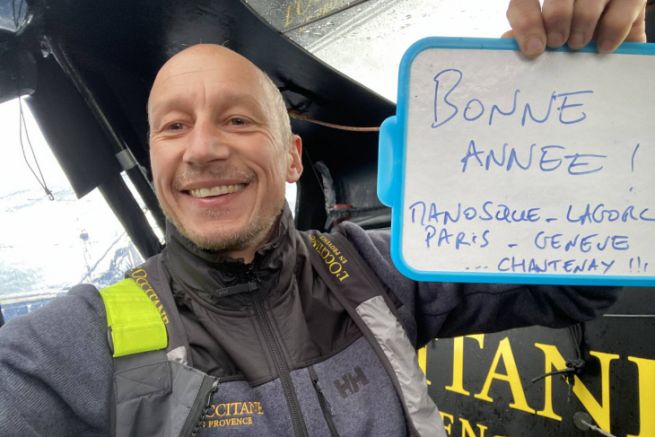 BONNE
ANNEE !
MANOSQUE - LAGORC
PARIS - GENEVE
... CHANTENAY !!!
L'OCCITANE
L'OCCITANE
EN PROVENCE
HH
OCCITANE
EN PROVENCE
ITANE
ENC